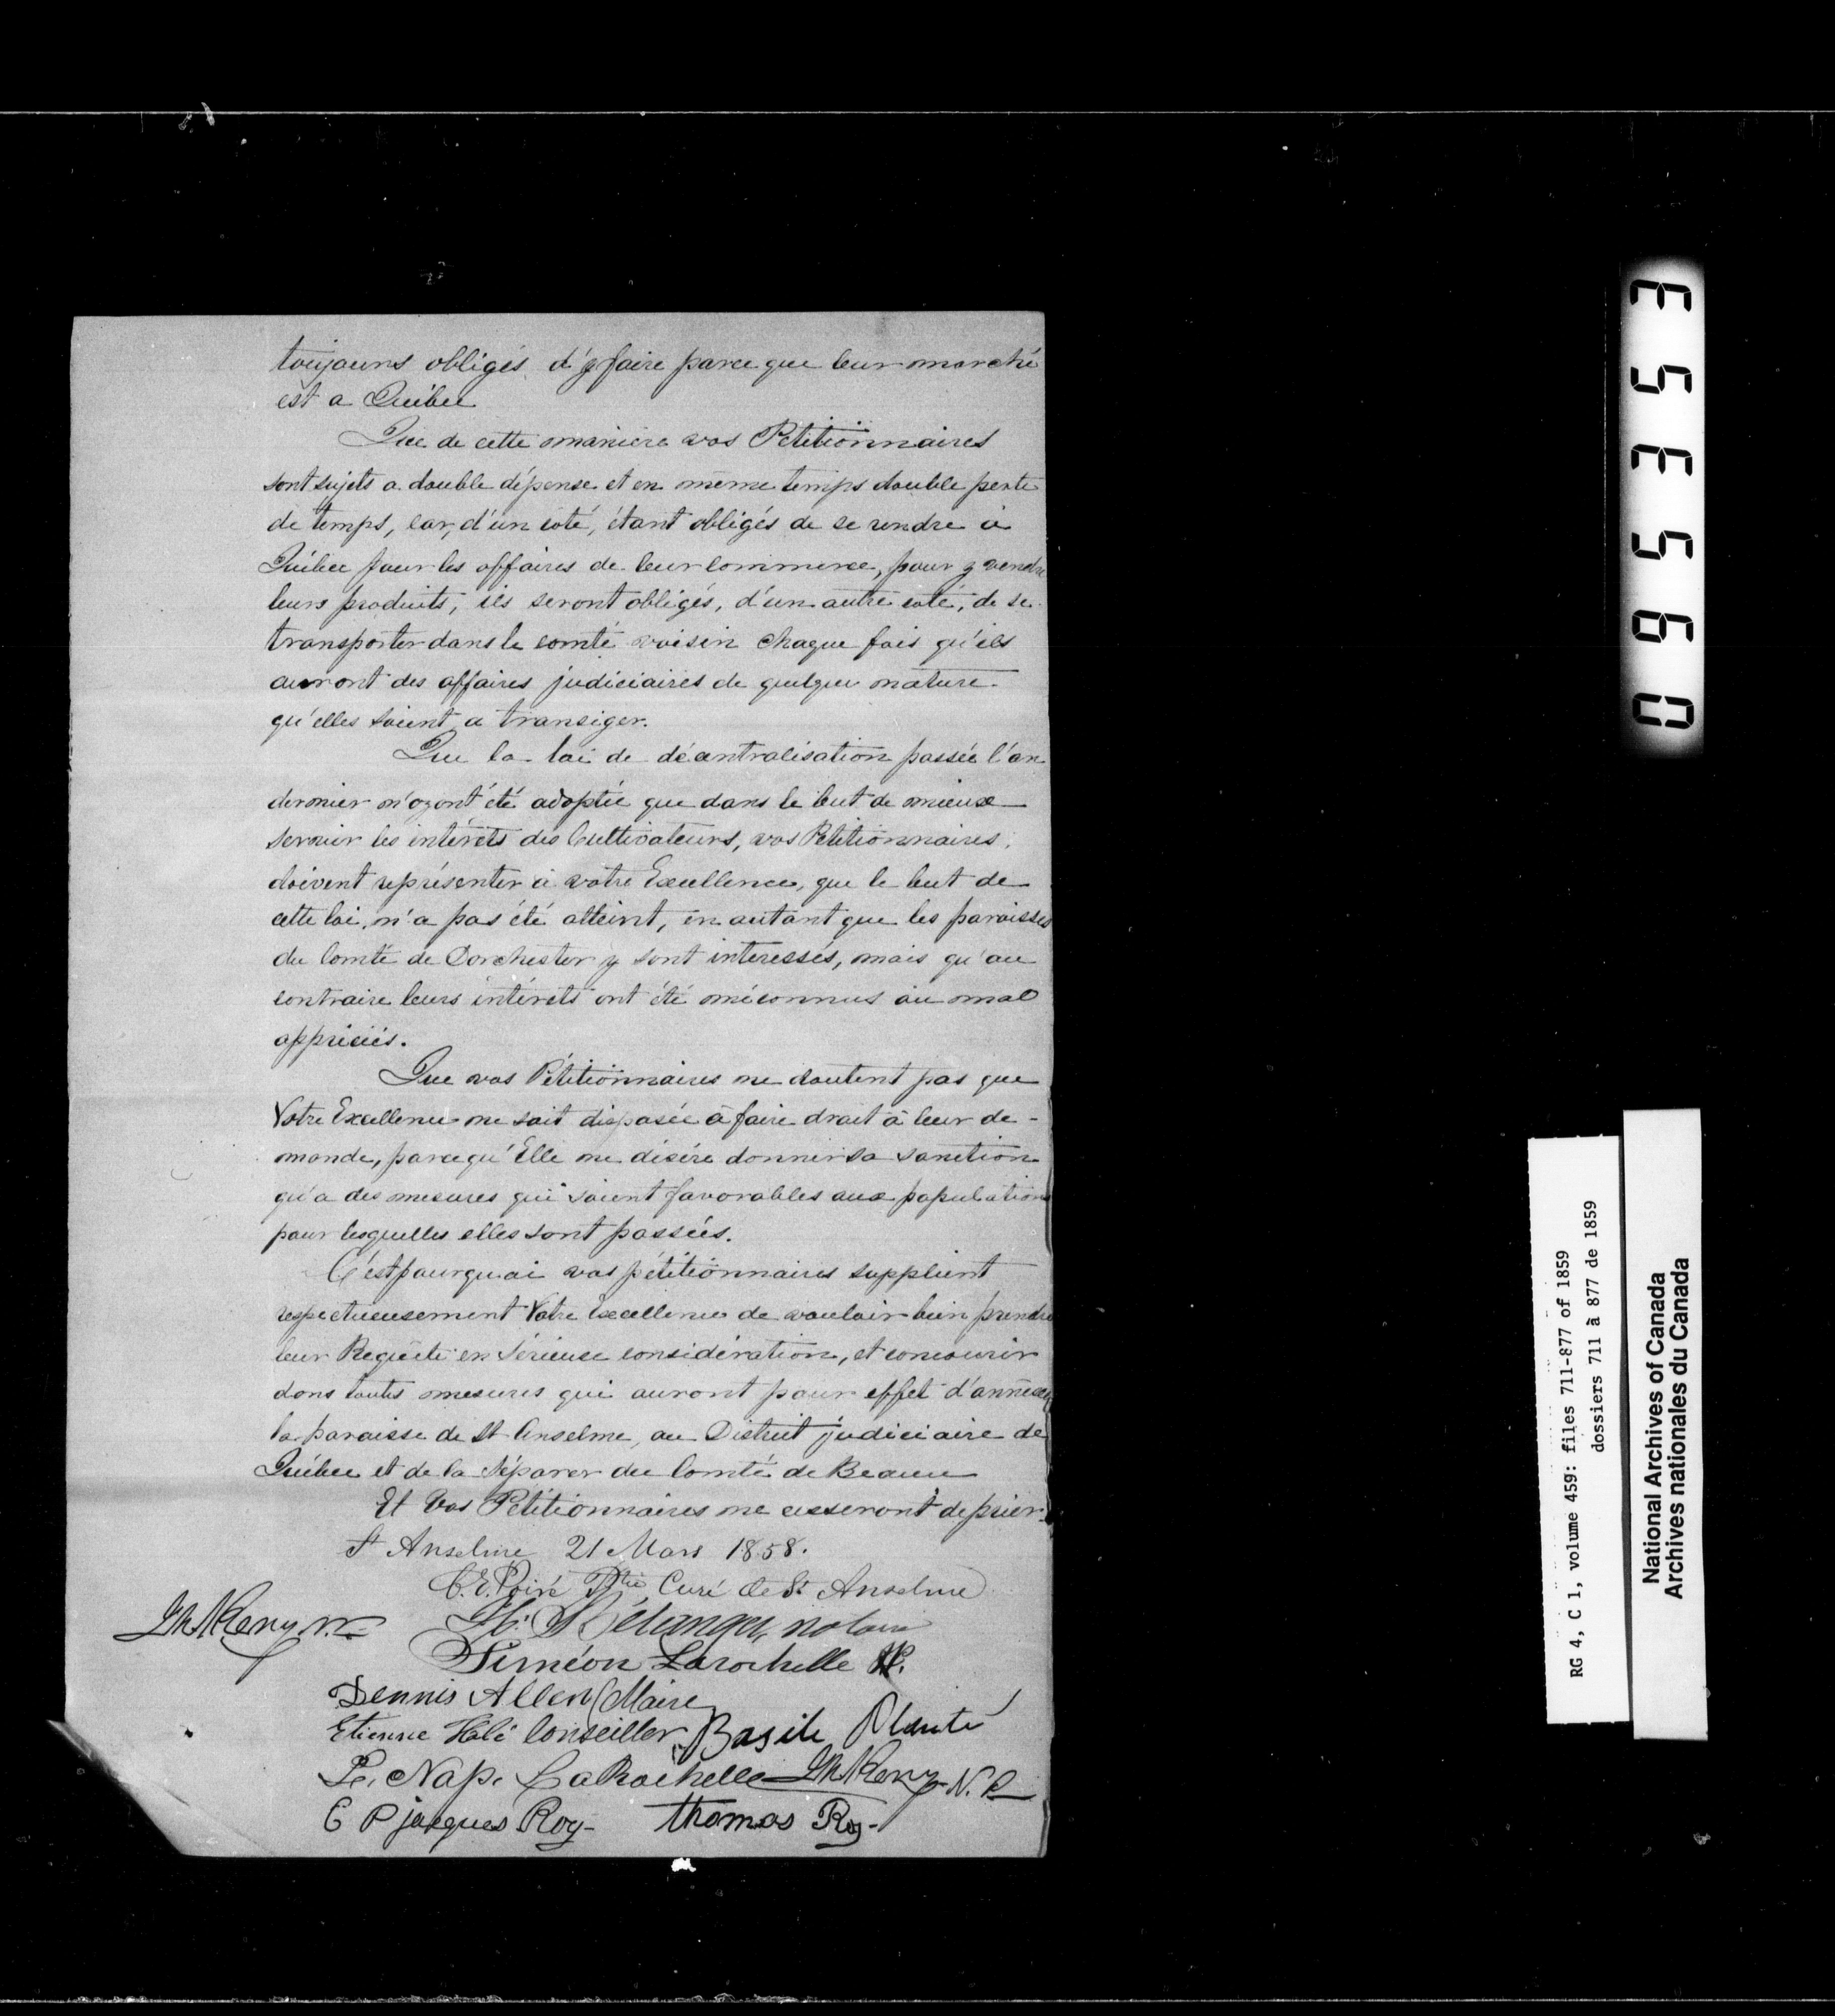 toujours obligés d'y faire parce que leur marché
est a Québec
Que de cette manière vos Petitionnaires
sont sujets a double dépense et en même temps double perte
de temps, car, d'un coté, étant obligés de se rendre à
Québec pour les affaires de leur commerce, pour y vendre
leurs produits, ils seront obligés, d'un autre coté, de se
transporter dans le comté voisin chaque fois qu'ils
auront des affaires judiciaires de quelque nature
qu'elles soient a transiger.
Que la loi de décentralisation passée l'an
dernier n'ayant été adoptée que dans le but de mieux
servir les intérêts des Cultivateurs, vos Pétitionnaires,
doivent représenter à votre Excellence, que le but de
cette loi, n'a pas été atteint, en autant que les paroisses
du Comté de Dorchester y sont intéressés, mais qu'au
contraire leurs intérêts ont été méconnus ou mal
appréciés.
Que vos Pétitionnaires ne doutent pas que
Votre Excellence ne soit disposée à faire droit à leur de-
mande, parcequ'Elle ne désire donner sa sanction
qu'a des mesures qui soient favorables aux populations
pour lesquelles elles sont passées.
C'est pourquoi vos pétitionnaires supplient
respectueusement Votre Excellence de vouloir bien prendre
leur Requête en sérieuse considération, et concourir
dans toutes mesures qui auront pour effet d'annexer
la paroisse de St Anselme, au District judiciaire de
Québec et de la séparer du Comté de Beauce
Et Vos Pétitionnaires ne cesseront de prier.
St Anselme 21 Mars 1858.
C. E. Poiré Ptre Curé de St Anselme
Bélanger, notaire
Siméon Larochelle
Dennis Allen Maire
Etienne Hallé Conseiller Basile Planté
Nap. LaRochelle N.P.
E P jacques Roy - thomas Roy -
0 6 5 3 5 3
RG 4, C 1, volume 459: files 711-877 of 1859
dossiers 711 à 877 de 1859
National Archives of Canada
Archives nationales du Canada